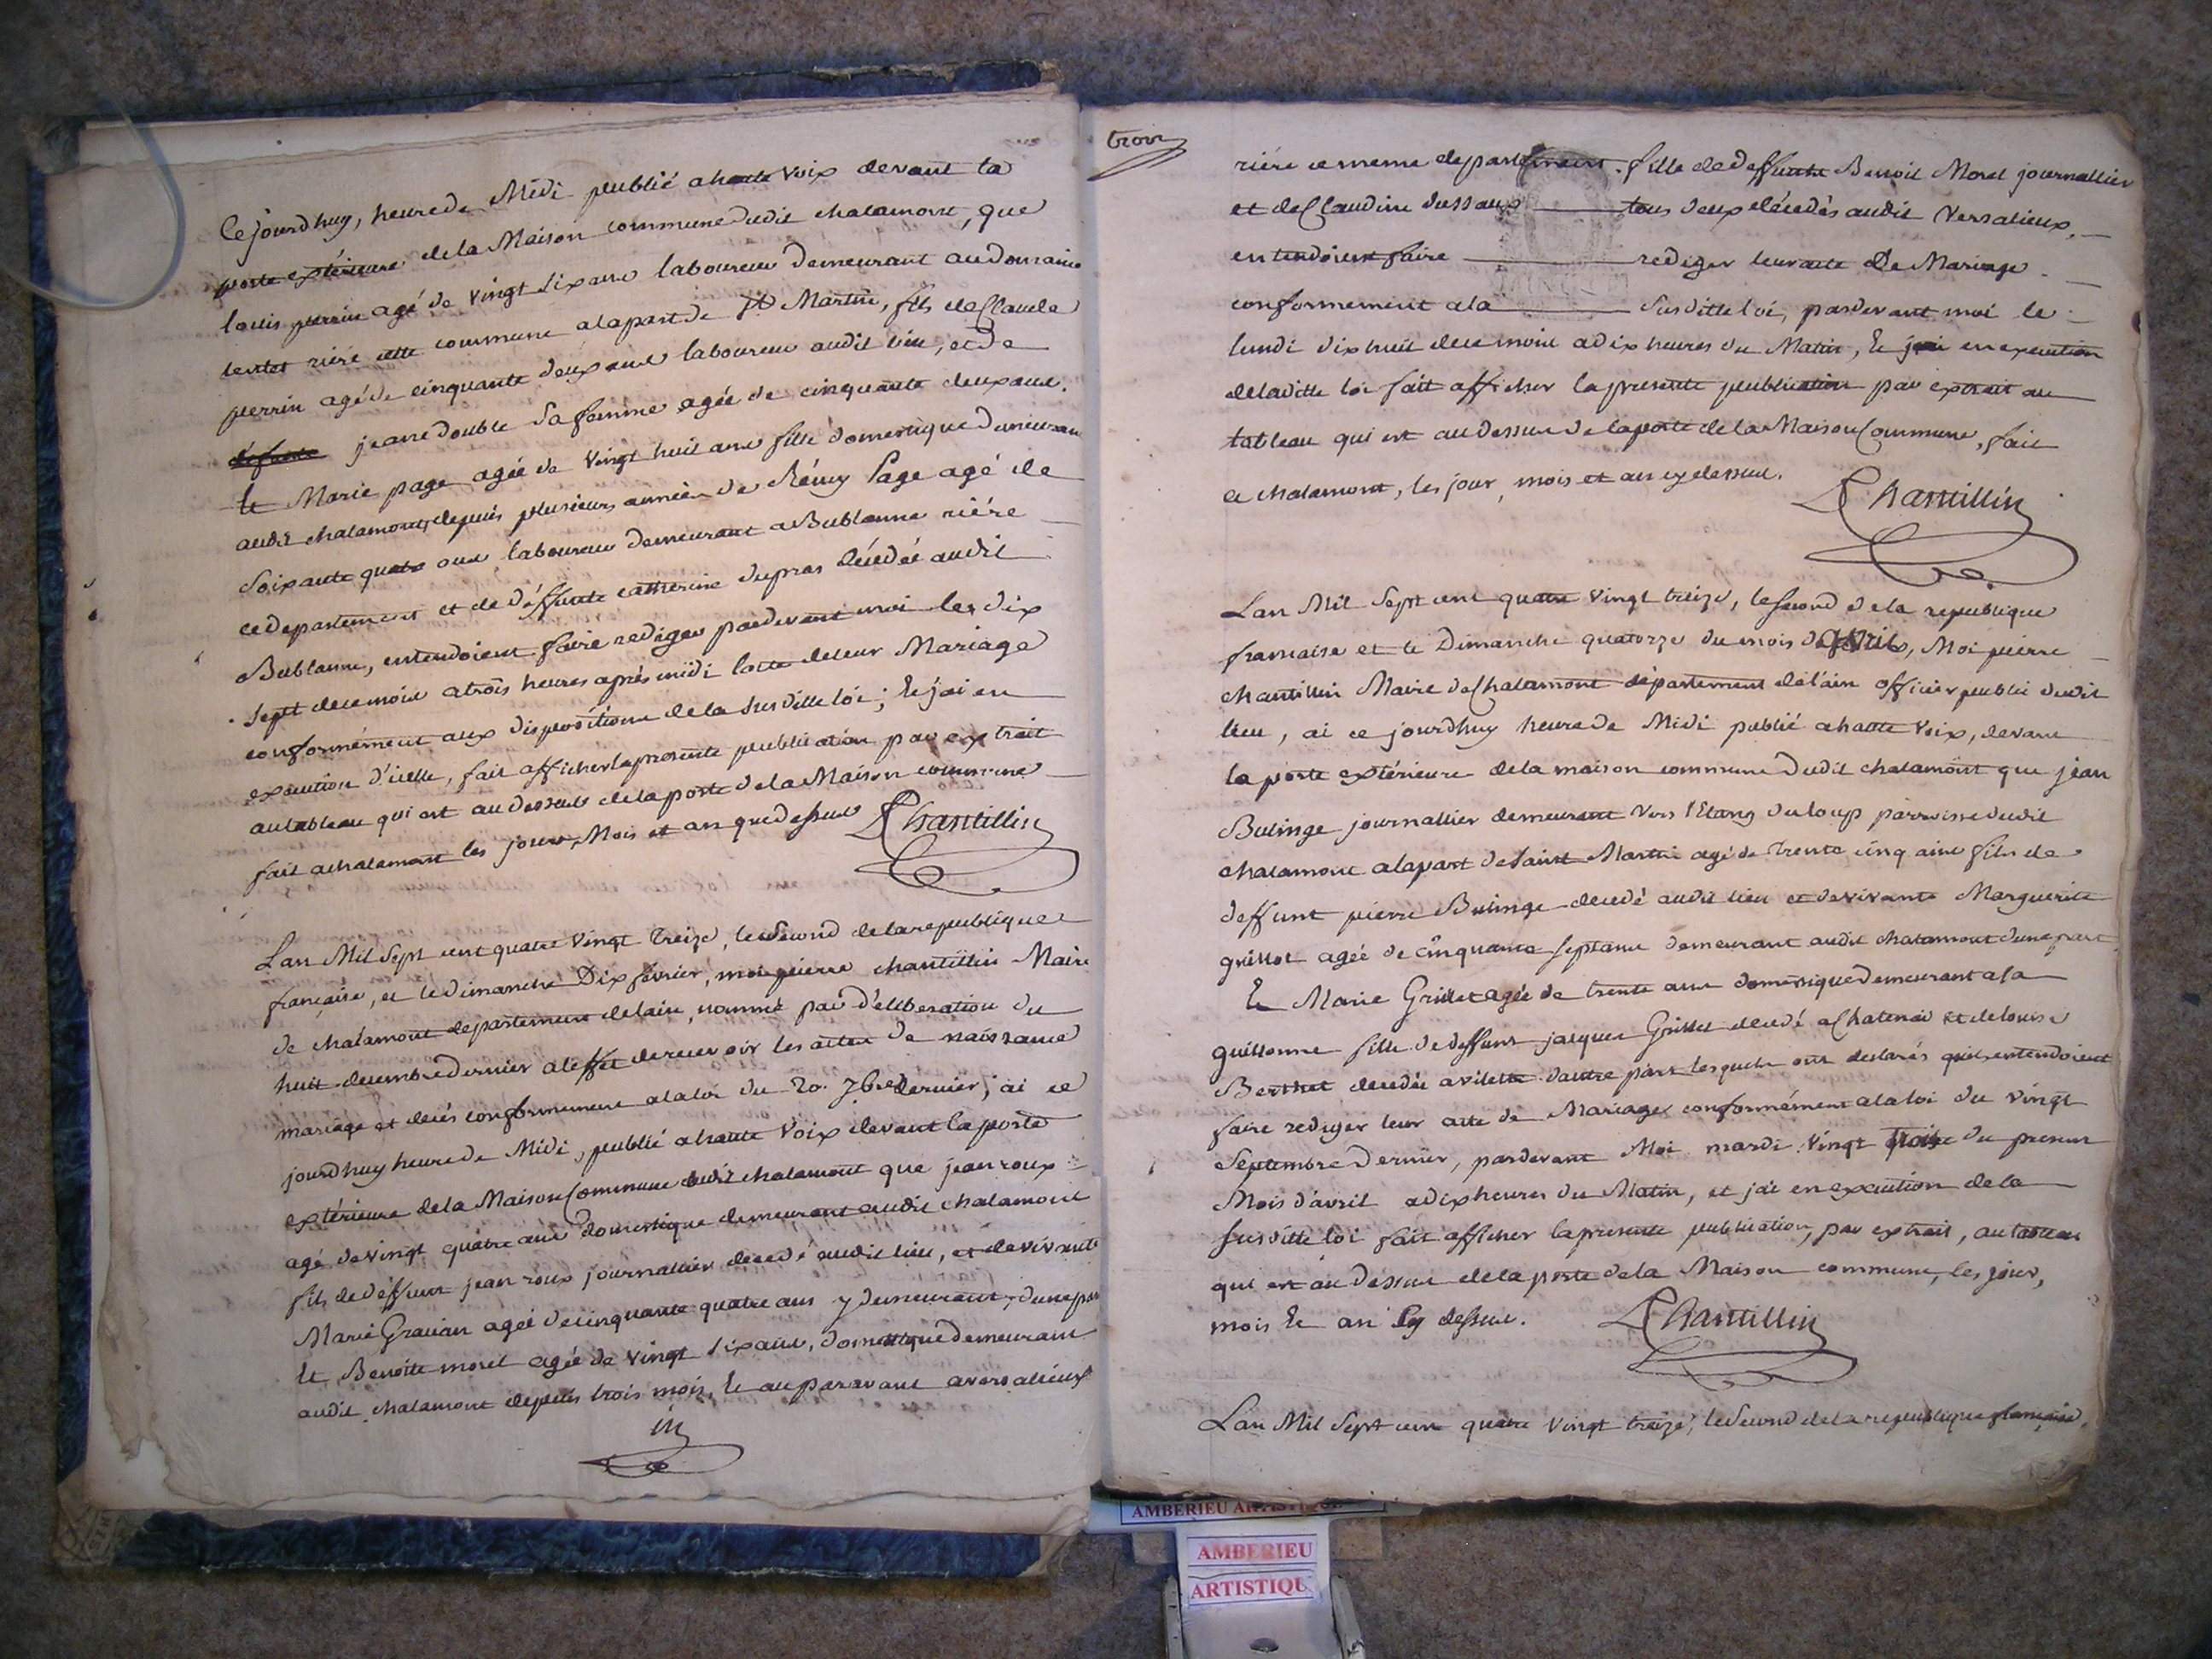 Ce jourdhuy, heure de Midi publié a haute voix devant la
porte extérieure de la Maison commune dudit chalamont, que
louis perrin agé de vingt six ans laboureur demeurant au domaine
rière cette commune a la part de St Martin, fils de Claude
perrin agé de cinquante deux ans laboureur audit lieu, et de
jeanne double sa femme agée de cinquante deux ans.
Et Marie page agée de vingt huit ans fille domestique demeuran
audit chalamont, depuis plusieurs années de Rémy Page agé de
Soixante quatre ans laboureur demeurant a Bublanne rière
ce departement et de déffunte catherine dupras décédée audit
Bublanne, entendoient faire rediger pardevant moi le dix
sept de ce mois a trois heures après midi l'acte de leur Mariage
conformément aux dispositions de la susditte loi ; Et j'ai en
execution d'icelle, fait afficher la presente publication par extrait
au tableau qui est au dessus de la porte de la Maison commune
fait a chalamont les jour, Mois et an que dessus PChantillin
Lan Mil Sept cent quatre vingt treize, le second de la republique
francaise, et le dimanche Dix fevrier, moi pierre chantillin Maire
de chalamont departement de lain, nommé par déliberation du
huit decembre dernier a leffet de recevoir les actes de naissance
mariage et decès conformement a la loi du 20. 7bre dernier, j'ai ce
jourdhuy heure de Midi, publié a haute voix devant la porte
extérieure de la Maison Commune dudit chalamont que jean roux
agé de vingt quatre ans domestique demeurant audit chalamont
fils de déffunt jean roux journallier decedé audit lieu, et de vivante
Marie Gravian agée de cinquante quatre ans y demeurant, dune part
Et Benoîte morel agée de vingt six ans, domestique demeurant
audit chalamont depuis trois mois, Et auparavant a versalieux
trois
rière ce meme departement. fille de deffunts Benoit Morel journallier
et de Claudine dussaux tous deux décédés audit Versalieux,
entendoient faire rediger leur acte de Mariage
conformement a la susditte loi, pardevant moi le
lundi dix huit de ce mois a dix heures du Matin, Et j'ai en execution
de laditte loi fait afficher la presente publication par extrait au
tableau qui est au dessus de la porte de la Maison Commune, fait
a chalamont, les jour, mois et an cy dessus.
PChantillin
Lan Mil Sept cent quatre vingt treize, le second de la republique
francaise et le Dimanche quatorze du mois d'avril, Moi pierre
chantillin Maire de Chalamont département de l'ain officier public dudit
lieu, ai ce jourdhuy heure de Midi publié a haute voix, devant
la porte extérieure de la maison commune dudit chalamont que jean
Bulinge journallier demeurant vers l'Etang du loup parroisse dudit
chalamont a la part de saint Martin agé de trente cinq ans fils de
deffunt pierre Bulinge decedé audit lieu et de vivante Marguerite
grillot agée de cinquante sept ans demeurant audit chalamont dune part
Et Marie Grillet agée de trente ans domestique demeurant a la
guillonne fille de deffunt jacques Grillet decedé a Chatenai et de louise
Berthet decedée a vilette dautre part lesquels ont declarés quils entendoient
faire rediger leur acte de Mariage conformément a la loi du vingt
Septembre dernier, pardevant Moi mardi vingt trois du present
Mois d'avril a dix heures du Matin, et j'ai en execution de la
susditte loi fait afficher la presente publication, par extrait, au tableau
qui est au dessus de la porte de la Maison commune, les jour,
mois Et an cy dessus. PChantillin
Lan Mil Sept cent quatre vingt treize, le second de la republique francaise,
AMBERIEU
AMBERIEU
ARTISTIQU